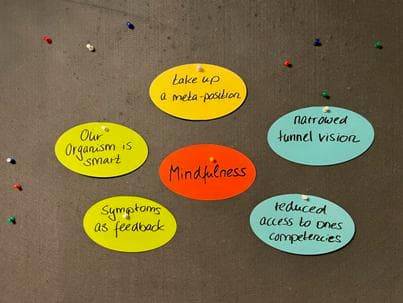 take up
a meta-position
Our
Organism is
smart
narrowed
tunnel vision
Mindfulness
Symptoms
as feedback
reduced
access to ones
competencies